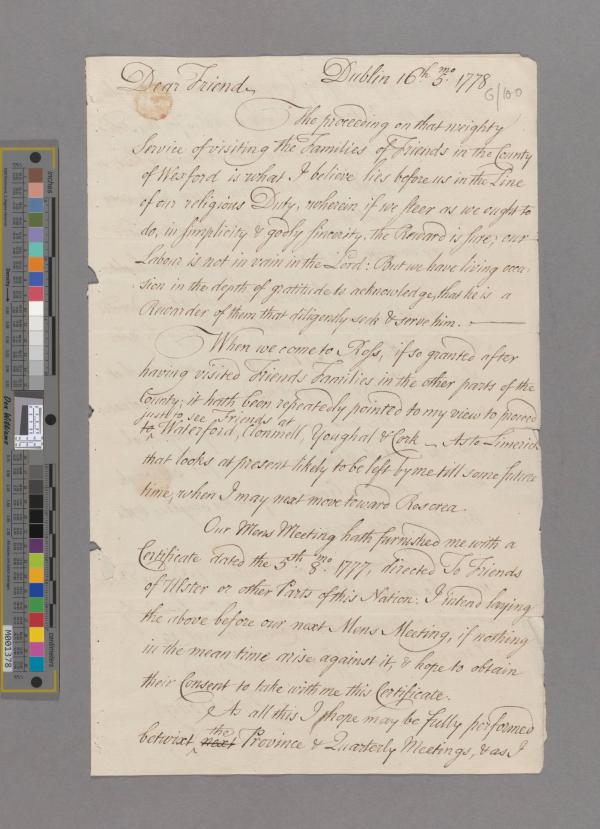 Dear Friend,
Dublin 16th. 5mo. 1778
G/100
The proceeding on that weighty
Service of visiting the Families of Friends in the County
of Wexford is what I believe lies before us in the Line
of our religious Duty, wherein if we steer as we ought to
do, in simplicity & godly sincerity, the Reward is sure; our
Labour is not in vain in the Lord: But we have living occa-
-sion in the depth of gratitude to acknowledge, that he is a
Rewarder of them that diligently seek & serve him.
When we come to Ross, if so granted after
having visited Friends Families in the other parts of the
County; it hath been repeatedly pointed to my view to proceed
just to see Friends at
to Waterford, Clonmell, Youghal & Cork. As to Limerick
that looks at present likely to be left by me till some future
time, when I may next move toward Roscrea.
Our Mens Meeting hath furnished me with a
Certificate dated the 5th. 8mo. 1777, directed To Friends
of Ulster or other Parts of this Nation: I intend laying
the above before our next Mens Meeting, if nothing
in the mean time arise against it, & hope to obtain
their Consent to take with me this Certificate.
As all this I hope may be fully performed
the
betwixt next Province & Quarterly Meetings, & as I
inches
centimeters
Don Williams
M001378